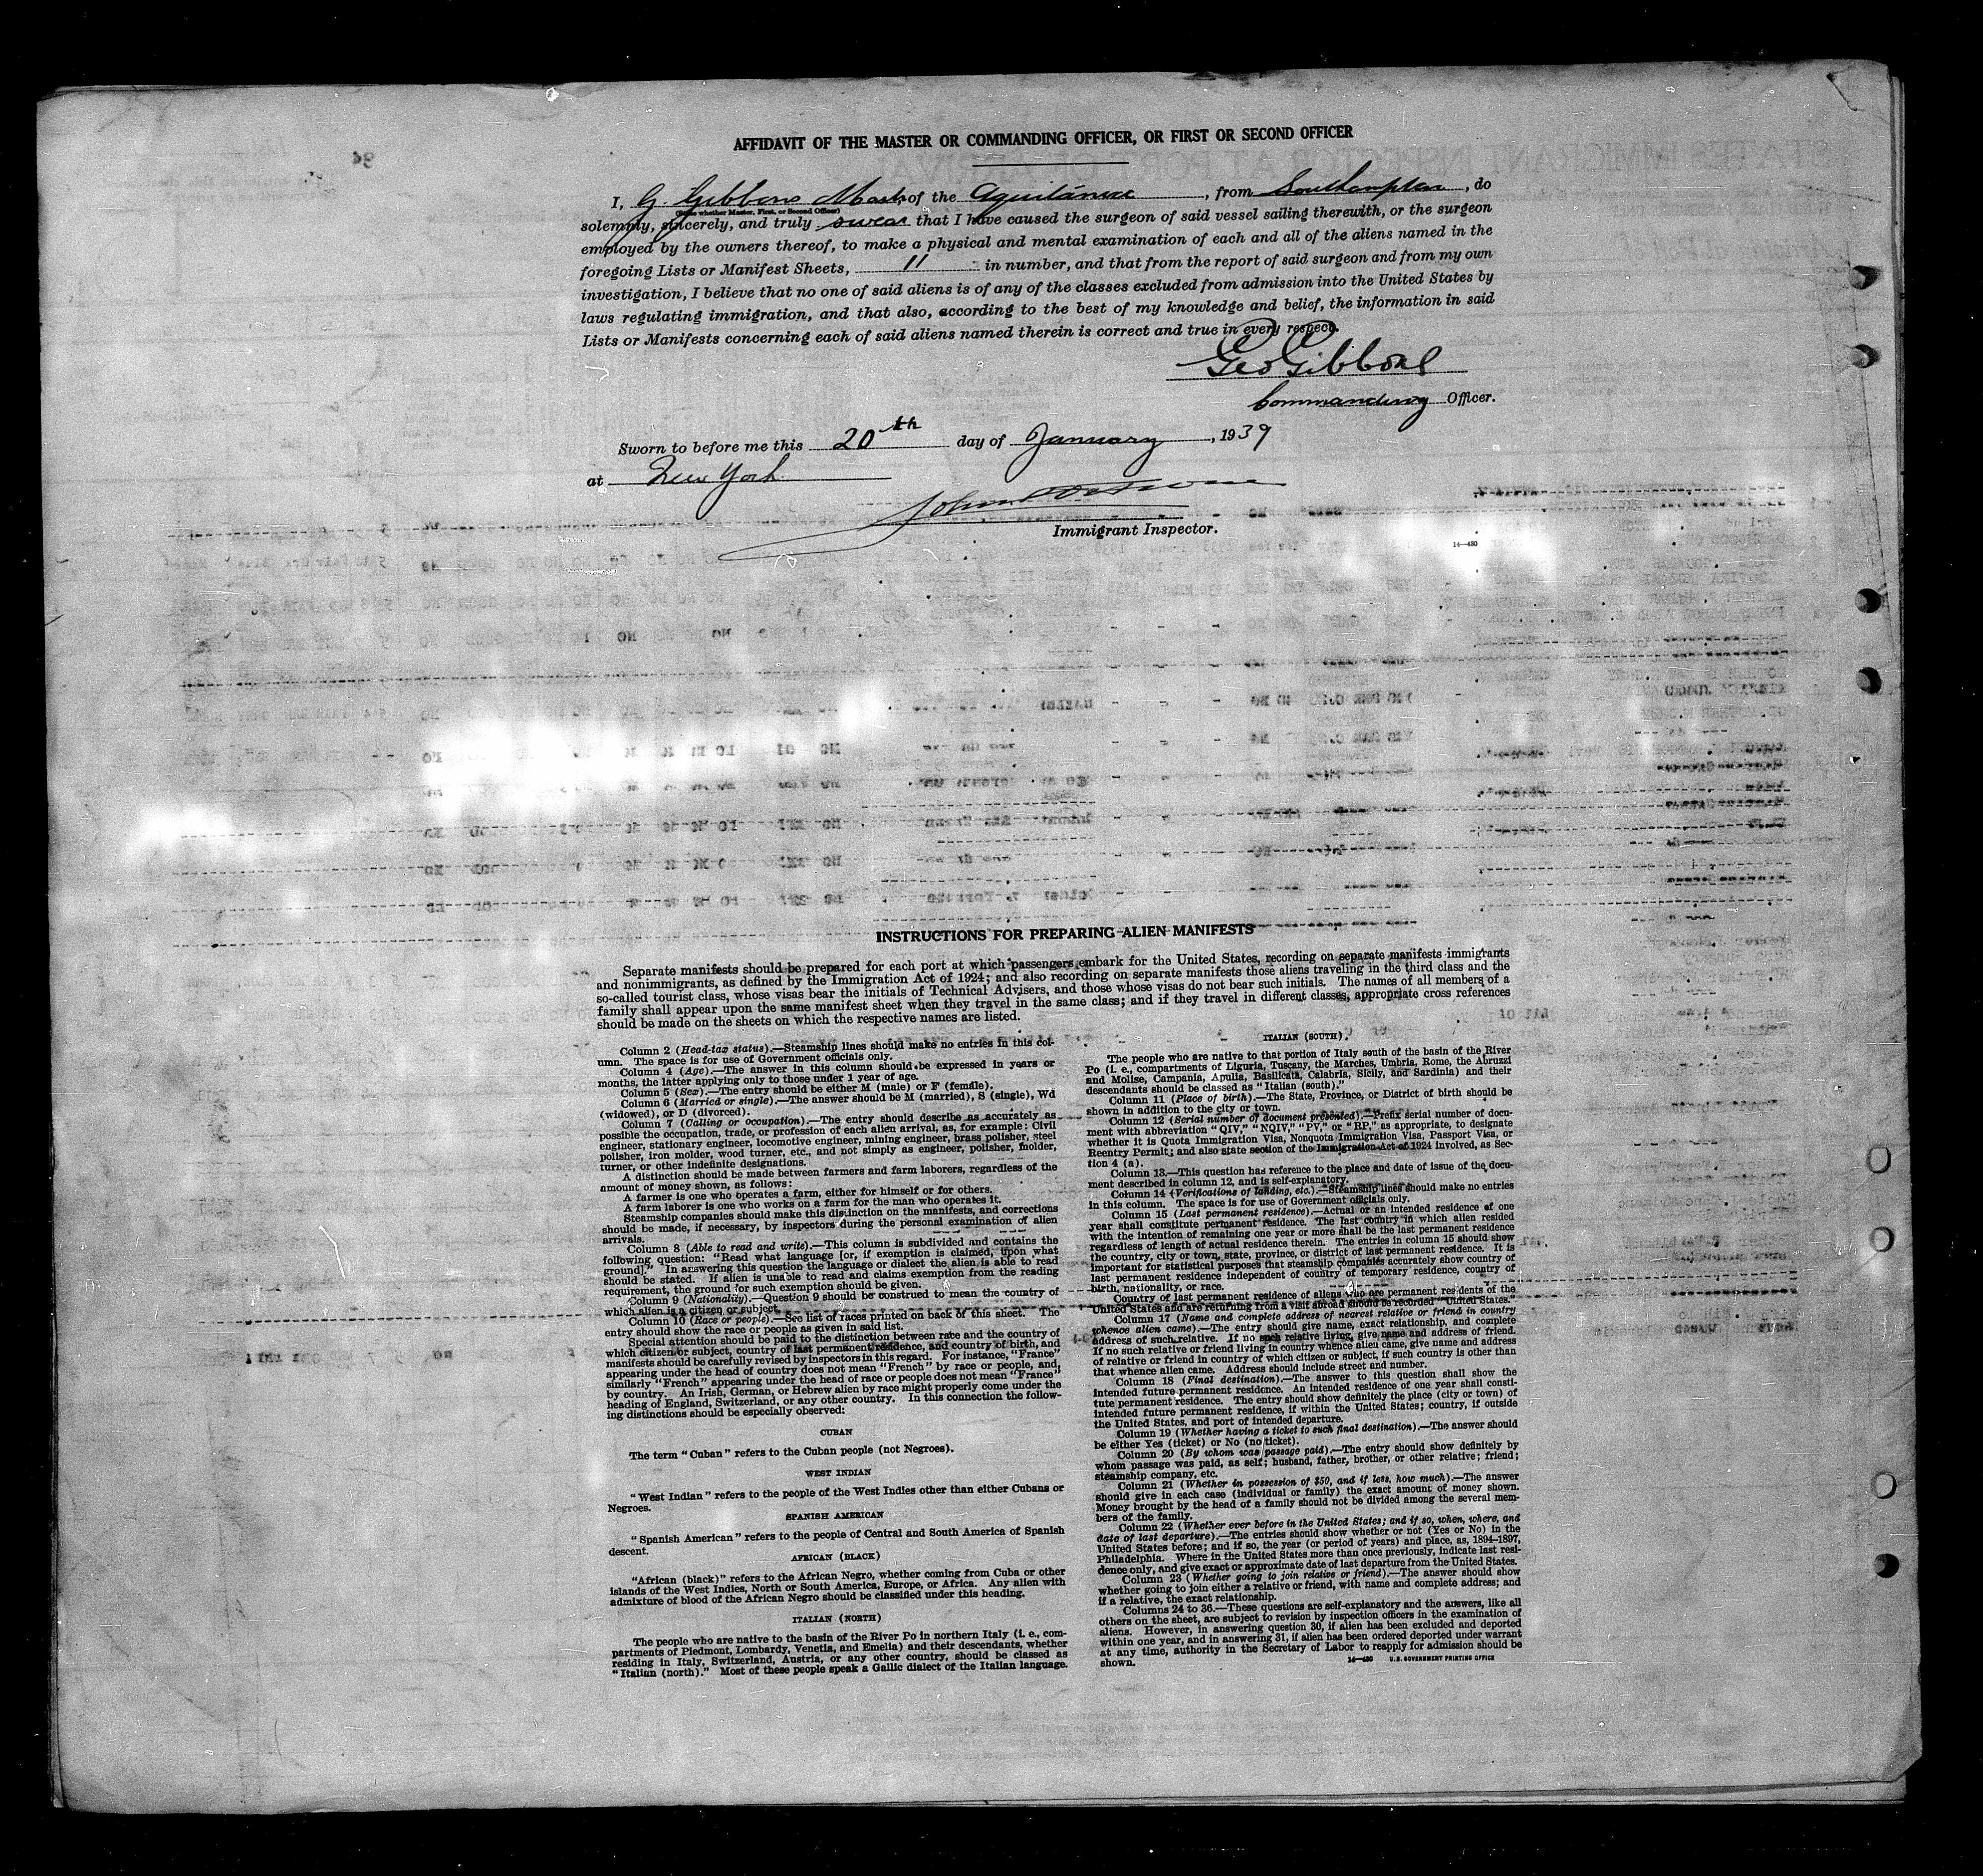 AFFIDAVIT OF THE MASTER OR COMMANDING OFFICER, OR FIRST OR SECOND OFFICER
I, G. Gibbons Master of the Aquitania, from Southampton, do
(State whether Master, First, or Second Officer)
solemnly, sincerely, and truly swear that I have caused the surgeon of said vessel sailing therewith, or the surgeon
employed by the owners thereof, to make a physical and mental examination of each and all of the aliens named in the
foregoing Lists or Manifest Sheets, 11 in number, and that from the report of said surgeon and from my own
investigation, I believe that no one of said aliens is of any of the classes excluded from admission into the United States by
laws regulating immigration, and that also, according to the best of my knowledge and belief, the information in said
Lists or Manifests concerning each of said aliens named therein is correct and true in every respect.
Geo Gibbons
Commanding Officer.
Sworn to before me this 20th day of January, 1939
at New York
John
Immigrant Inspector.
14—430
INSTRUCTIONS FOR PREPARING ALIEN MANIFESTS
Separate manifests should be prepared for each port at which passengers embark for the United States, recording on separate manifests immigrants
and nonimmigrants, as defined by the Immigration Act of 1924; and also recording on separate manifests those aliens traveling in the third class and the
so-called tourist class, whose visas bear the initials of Technical Advisers, and those whose visas do not bear such initials. The names of all members of a
family shall appear upon the same manifest sheet when they travel in the same class; and if they travel in different classes, appropriate cross references
should be made on the sheets on which the respective names are listed.
Column 2 (Head-tax status).—Steamship lines should make no entries in this col-
umn. The space is for use of Government officials only.
Column 4 (Age).—The answer in this column should be expressed in years or
months, the latter applying only to those under 1 year of age.
Column 5 (Sex).—The entry should be either M (male) or F (female).
Column 6 (Married or single).—The answer should be M (married), S (single), Wd
(widowed), or D (divorced).
Column 7 (Calling or occupation).—The entry should describe as accurately as
possible the occupation, trade, or profession of each alien arrival, as, for example: Civil
engineer, stationary engineer, locomotive engineer, mining engineer, brass polisher, steel
polisher, iron molder, wood turner, etc., and not simply as engineer, polisher, molder,
turner, or other indefinite designations.
A distinction should be made between farmers and farm laborers, regardless of the
amount of money shown, as follows:
A farmer is one who operates a farm, either for himself or for others.
A farm laborer is one who works on a farm for the man who operates it.
Steamship companies should make this distinction on the manifests, and corrections
should be made, if necessary, by inspectors during the personal examination of alien
arrivals.
Column 8 (Able to read and write).—This column is subdivided and contains the
following question: "Read what language [or, if exemption is claimed, upon what
ground]." In answering this question the language or dialect the alien is able to read
should be stated. If alien is unable to read and claims exemption from the reading
requirement, the ground for such exemption should be given.
Column 9 (Nationality).—Question 9 should be construed to mean the country of
which alien is a citizen or subject.
Column 10 (Race or people).—See list of races printed on back of this sheet. The
entry should show the race or people as given in said list.
Special attention should be paid to the distinction between race and the country of
which citizen or subject, country of last permanent residence, and country of birth, and
manifests should be carefully revised by inspectors in this regard. For instance, "France"
appearing under the head of country does not mean "French" by race or people, and,
similarly "French" appearing under the head of race or people does not mean "France"
by country. An Irish, German, or Hebrew alien by race might properly come under the
heading of England, Switzerland, or any other country. In this connection the follow-
ing distinctions should be especially observed:
CUBAN
The term "Cuban" refers to the Cuban people (not Negroes).
WEST INDIAN
"West Indian" refers to the people of the West Indies other than either Cubans or
Negroes.
SPANISH AMERICAN
"Spanish American" refers to the people of Central and South America of Spanish
descent.
AFRICAN (BLACK)
"African (black)" refers to the African Negro, whether coming from Cuba or other
islands of the West Indies, North or South America, Europe, or Africa. Any alien with
admixture of blood of the African Negro should be classified under this heading.
ITALIAN (NORTH)
The people who are native to the basin of the River Po in northern Italy (i. e., com-
partments of Piedmont, Lombardy, Venetia, and Emelia) and their descendants, whether
residing in Italy, Switzerland, Austria, or any other country, should be classed as
"Italian (north)." Most of these people speak a Gallic dialect of the Italian language.
ITALIAN (SOUTH).
The people who are native to that portion of Italy south of the basin of the River
Po (i. e., compartments of Liguria, Tuscany, the Marches, Umbria, Rome, the Abruzzi
and Molise, Campania, Apulia, Basilicata, Calabria, Sicily, and Sardinia) and their
descendants should be classed as "Italian (south)."
Column 11 (Place of birth).—The State, Province, or District of birth should be
shown in addition to the city or town.
Column 12 (Serial number of document presented).—Prefix serial number of docu-
ment with abbreviation "QIV," "NQIV," "PV," or "RP," as appropriate, to designate
whether it is Quota Immigration Visa, Nonquota Immigration Visa, Passport Visa, or
Reentry Permit; and also state section of the Immigration Act of 1924 involved, as Sec-
tion 4 (a).
Column 13.—This question has reference to the place and date of issue of the docu-
ment described in column 12, and is self-explanatory.
Column 14 (Verifications of landing, etc.).—Steamship lines should make no entries
in this column. The space is for use of Government officials only.
Column 15 (Last permanent residence).—Actual or an intended residence of one
year shall constitute permanent residence. The last country in which alien resided
with the intention of remaining one year or more shall be the last permanent residence
regardless of length of actual residence therein. The entries in column 15 should show
the country, city or town, state, province, or district of last permanent residence. It is
important for statistical purposes that steamship companies accurately show country of
last permanent residence independent of country of temporary residence, country of
birth, nationality, or race.
Country of last permanent residence of aliens who are permanent residents of the
United States and are returning from a visit abroad should be recorded "United States."
Column 17 (Name and complete address of nearest relative or friend in country
whence alien came).—The entry should give name, exact relationship, and complete
address of such relative. If no such relative living, give name and address of friend.
If no such relative or friend living in country whence alien came, give name and address
of relative or friend in country of which citizen or subject, if such country is other than
that whence alien came. Address should include street and number.
Column 18 (Final destination).—The answer to this question shall show the
intended future permanent residence. An intended residence of one year shall consti-
tute permanent residence. The entry should show definitely the place (city or town) of
intended future permanent residence, if within the United States; country, if outside
the United States, and port of intended departure.
Column 19 (Whether having a ticket to such final destination).—The answer should
be either Yes (ticket) or No (no ticket).
Column 20 (By whom was passage paid).—The entry should show definitely by
whom passage was paid, as self; husband, father, brother, or other relative; friend;
steamship company, etc.
Column 21 (Whether in possession of $50, and if less, how much).—The answer
should give in each case (individual or family) the exact amount of money shown.
Money brought by the head of a family should not be divided among the several mem-
bers of the family.
Column 22 (Whether ever before in the United States; and if so, when, where, and
date of last departure).—The entries should show whether or not (Yes or No) in the
United States before; and if so, the year (or period of years) and place, as, 1894–1897,
Philadelphia. Where in the United States more than once previously, indicate last resi-
dence only, and give exact or approximate date of last departure from the United States.
Column 23 (Whether going to join relative or friend).—The answer should show
whether going to join either a relative or friend, with name and complete address; and
if a relative, the exact relationship.
Columns 24 to 36.—These questions are self-explanatory and the answers, like all
others on the sheet, are subject to revision by inspection officers in the examination of
aliens. However, in answering question 30, if alien has been excluded and deported
within one year, and in answering 31, if alien has been ordered deported under warrant
at any time, authority in the Secretary of Labor to reapply for admission should be
shown.
14—430 U.S. GOVERNMENT PRINTING OFFICE